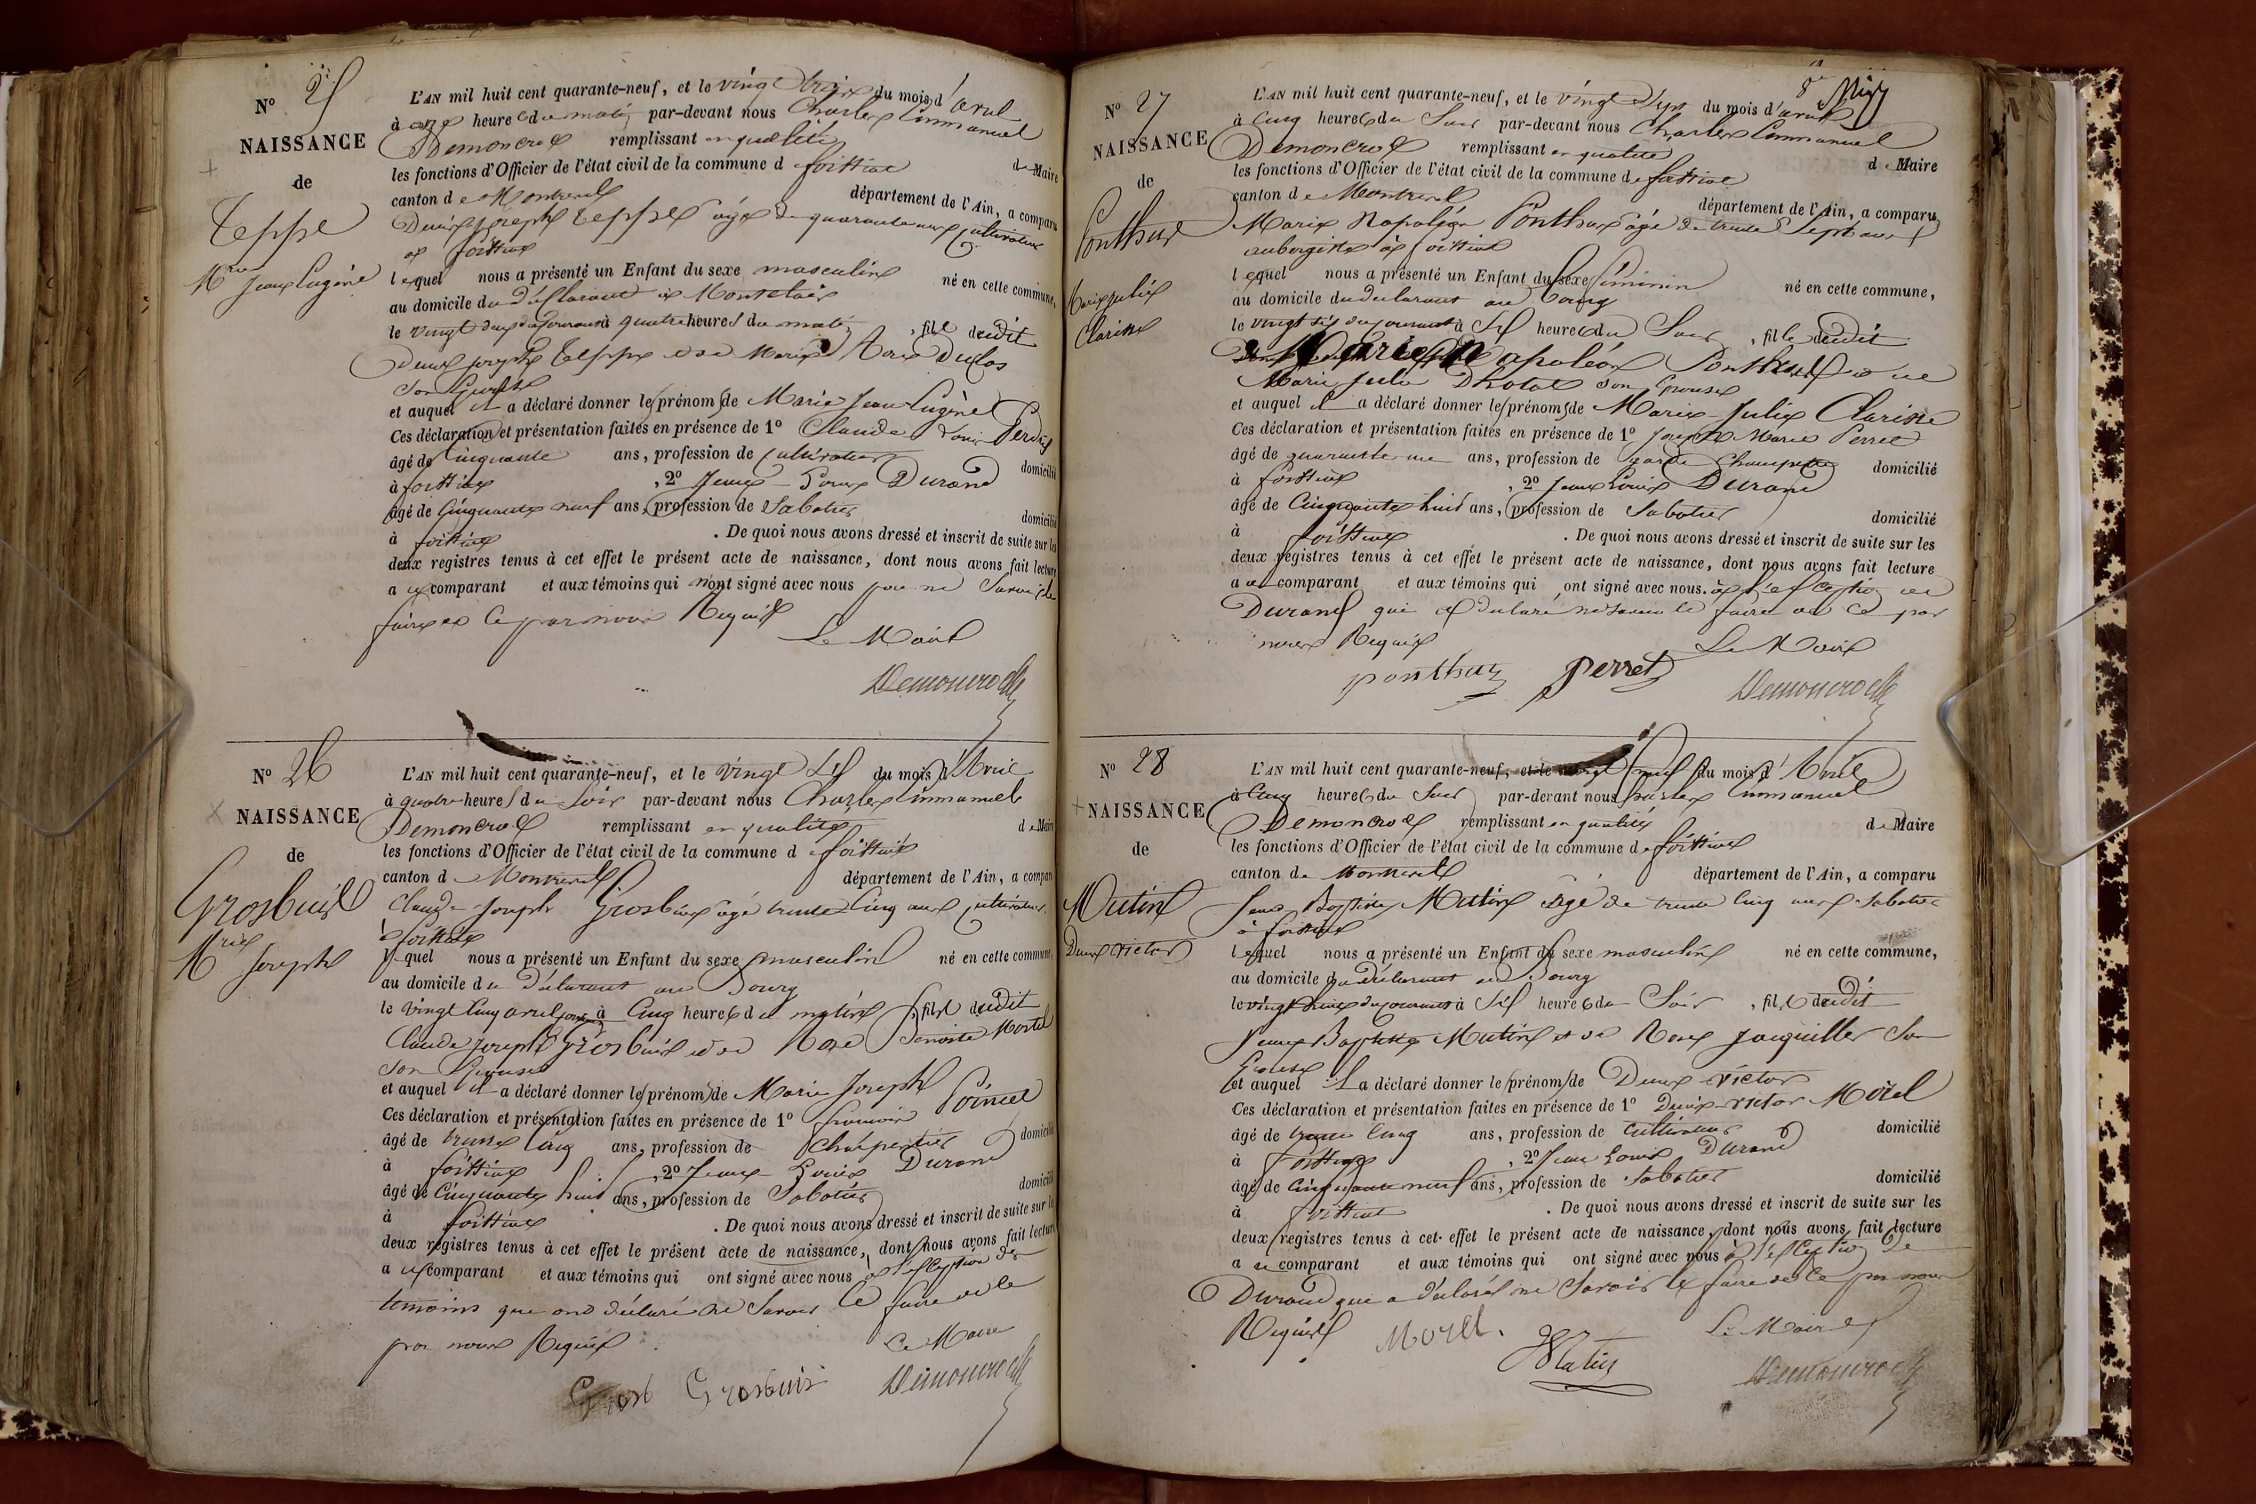 N° 25
NAISSANCE
de
Teppe
Mie Jean Eugène
L'AN mil huit cent quarante-neuf, et le vingt trois du mois d'avril
à onze heures du matin par-devant nous Charles Emmanuel
Demoncroz remplissant en qualité de Maire
les fonctions d'Officier de l'état civil de la commune de foissiat
canton de Montrevel département de l'Ain, a comparu
Denis Joseph Teppe âgé de quarante ans cultivateur
à foissiat
lequel nous a présenté un Enfant du sexe masculin né en cette commune,
au domicile du déclarant à
le vingt deux du courant à quatre heures du matin, fils dudit
Denis joseph Teppe et de Marie Duclos
son Epouse
et auquel il a déclaré donner les prénoms de Marie Jean Eugène
Ces déclaration et présentation faites en présence de 1° Claude Louis
âgé de Cinquante ans, profession de cultivateur domicilié
à foissiat, 2° Jean Louis Durand
âgé de Cinquante neuf ans, profession de Sabotier domicilié
à foissiat. De quoi nous avons dressé et inscrit de suite sur les
deux registres tenus à cet effet le présent acte de naissance, dont nous avons fait lecture
au comparant et aux témoins qui n'ont signé avec nous pour ne Savoir le
faire de ce par nous Requis
Le Maire
Demoncroz
N° 26
NAISSANCE
de
Grosbuis
Mrie Joseph
L'AN mil huit cent quarante-neuf, et le vingt six du mois d'Avril
à quatre heures du Soir par-devant nous Charles Emmanuel
Demoncroz remplissant en qualité de Maire
les fonctions d'Officier de l'état civil de la commune de foissiat
canton de Montrevel département de l'Ain, a comparu
Claude Joseph Grosbuis âgé trente Cinq ans cultivateur
à foissiat
lequel nous a présenté un Enfant du sexe masculin né en cette commune,
au domicile du déclarant au Bourg
le vingt Cinq avril à Cinq heures du matin, fils dudit
Claude Joseph Grosbuis et de Rose Benoite Mortel
son Epouse
et auquel il a déclaré donner les prénoms de Marie Joseph
Ces déclaration et présentation faites en présence de 1° françois
âgé de trente Cinq ans, profession de Charpentier domicilié
à foissiat, 2° Jean Louis Durand
âgé de Cinquante huit ans, profession de Sabotier domicilié
à foissiat. De quoi nous avons dressé et inscrit de suite sur les
deux registres tenus à cet effet le présent acte de naissance, dont nous avons fait lecture
au comparant et aux témoins qui ont signé avec nous à l'exception des
temoins que ont déclaré ne Savoir le faire de ce
par nous Requis
Le Maire
Grosb Grosbuis Demoncroz
8e
N° 27
NAISSANCE
de
Ponthus
Marie Julie
Clarisse
L'AN mil huit cent quarante-neuf, et le vingt Sept du mois d'avril
à Cinq heures du Soir par-devant nous Charles Emmanuel
Demoncroz remplissant en qualité de Maire
les fonctions d'Officier de l'état civil de la commune de foissiat
canton de Montrevel département de l'Ain, a comparu
Marie Napoléon Ponthus âgé de trente Sept ans
aubergiste à foissiat
lequel nous a présenté un Enfant du sexe féminin né en cette commune,
au domicile du declarant au bourg
le vingt six du courant à Six heures du Soir, fille dudit
Marie Napoléon Ponthus et de
Marie Julie Son Epouse
et auquel il a déclaré donner les prénoms de Marie Julie Clarisse
Ces déclaration et présentation faites en présence de 1° Joseph Marie Perret
âgé de quarante un ans, profession de garde Champetre domicilié
à foissiat, 2° Jean Louis Durand
âgé de Cinquante huit ans, profession de Sabotier domicilié
à foissiat. De quoi nous avons dressé et inscrit de suite sur les
deux registres tenus à cet effet le présent acte de naissance, dont nous avons fait lecture
au comparant et aux témoins qui ont signé avec nous à l'exception de
Durand qui a declaré ne savoir le faire de ce par
nous Requis
Le Maire
ponthus Perret Demoncroz
N° 28
NAISSANCE
de
Mutin
Denis Victor
L'AN mil huit cent quarante-neuf, et le vingt neuf du mois d'Avril
à Cinq heures du Soir par-devant nous Charles Emmanuel
Demoncroz remplissant en qualité de Maire
les fonctions d'Officier de l'état civil de la commune de foissiat
canton de Montrevel département de l'Ain, a comparu
Jean Baptiste Mutin âgé de trente Cinq ans Sabotier
à foissiat
lequel nous a présenté un Enfant du sexe masculin né en cette commune,
au domicile du déclarant au Bourg
le vingt huit du courant à Six heures du Soir, fils dudit
Jean Baptiste Mutin et de Rose Son
Epouse
et auquel il a déclaré donner les prénoms de Denis Victor
Ces déclaration et présentation faites en présence de 1° Denis Victor Morel
âgé de trente Cinq ans, profession de Cultivateur domicilié
à foissiat, 2° Jean Louis Durand
âgé de Cinquante neuf ans, profession de Sabotier domicilié
à foissiat. De quoi nous avons dressé et inscrit de suite sur les
deux registres tenus à cet effet le présent acte de naissance, dont nous avons fait lecture
au comparant et aux témoins qui ont signé avec nous à l'exception de
Durand qui a déclaré ne Savoir le faire de ce par nous
Requis
Le Maire
Morel. Mutin Demoncroz